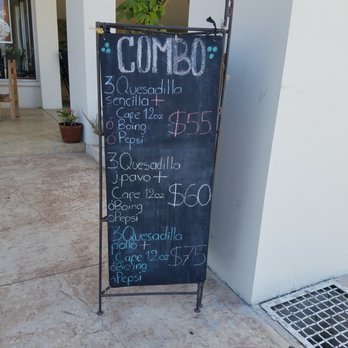 COMBO
3 Quesadilla
sencilla +
Cafe 12oz
ó Boing
ó Pepsi
$55
3 Quesadilla
j.pavo +
Cafe 12oz
ó Boing
ó Pepsi
$60
3 Quesadilla
pollo +
Cafe 12oz
ó Boing
ó Pepsi
$75